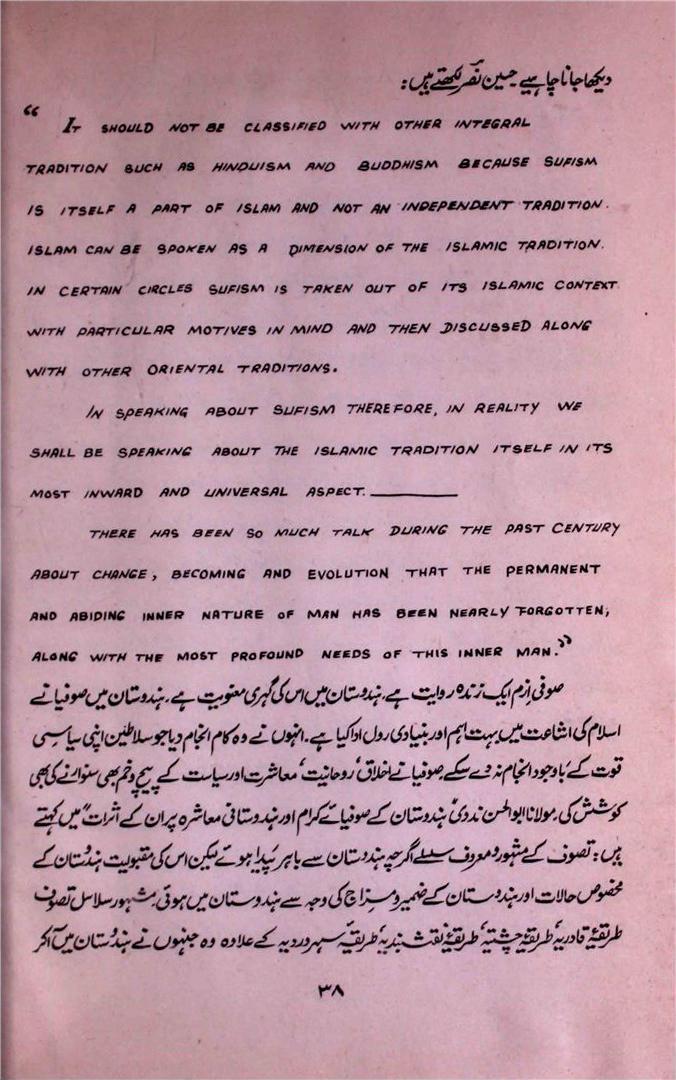 دیکھا جانا چاہیے حسین نصر لکھتے ہیں:
“ IT SHOULD NOT BE CLASSIFIED WITH OTHER INTEGRAL
TRADITION SUCH AS HINDUISM AND BUDDHISM BECAUSE SUFISM
IS ITSELF A PART OF ISLAM AND NOT AN INDEPENDENT TRADITION.
ISLAM CAN BE SPOKEN AS A DIMENSION OF THE ISLAMIC TRADITION.
IN CERTAIN CIRCLES SUFISM IS TAKEN OUT OF ITS ISLAMIC CONTEXT
WITH PARTICULAR MOTIVES IN MIND AND THEN DISCUSSED ALONG
WITH OTHER ORIENTAL TRADITIONS.
IN SPEAKING ABOUT SUFISM THEREFORE, IN REALITY WE
SHALL BE SPEAKING ABOUT THE ISLAMIC TRADITION ITSELF IN ITS
MOST INWARD AND UNIVERSAL ASPECT. ———
THERE HAS BEEN SO MUCH TALK DURING THE PAST CENTURY
ABOUT CHANGE, BECOMING AND EVOLUTION THAT THE PERMANENT
AND ABIDING INNER NATURE OF MAN HAS BEEN NEARLY FORGOTTEN,
ALONG WITH THE MOST PROFOUND NEEDS OF THIS INNER MAN.”
صوفی ازم ایک زندہ روایت ہے، ہندوستان میں اس کی گہری معنویت ہے، ہندوستان میں صوفیا نے
اسلام کی اشاعت میں بہت اہم اور بنیادی رول ادا کیا ہے۔ انہوں نے وہ کام انجام دیا جو سلاطین اپنی سیاسی
قوت کے باوجود انجام نہ دے سکے۔ صوفیا نے اخلاق، روحانیت، معاشرت اور سیاست کے پیچ و خم بھی سنوارنے کی بھی
کوشش کی۔ مولانا ابوالحسن ندوی، ہندوستان کے صوفیائے کرام اور ہندوستانی معاشرہ پر ان کے اثرات” میں کہتے
ہیں: تصوف کے مشہور و معروف سلسلے اگرچہ ہندوستان سے باہر پیدا ہوئے لیکن اس کی مقبولیت ہندُستان کے
مخصوص حالات اور ہندوستان کے ضمیر و مزاج کی وجہ سے ہندوستان میں ہوئی۔ مشہور سلاسل تصوف
طریقۂ قادریہ، طریقۂ چشتیہ، طریقۂ نقشبندیہ، طریقۂ سہروردیہ کے علاوہ وہ جنہوں نے ہندُستان میں آکر
۳۸